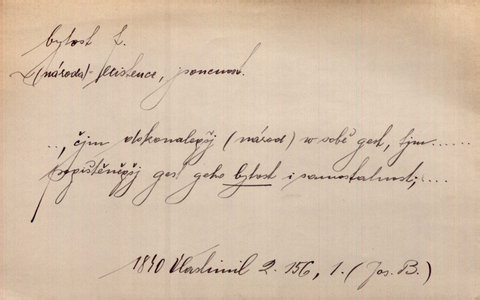 bytost f.
(národa) - existence, jsoucnost.
..., čjm dokonalegšj (národ) w sobě gest, tjm......
bezpištěněgšj gest geho bytost i samostatnost;,...
1840 Vlastimil 2. 156, 1. (Jos. B.)